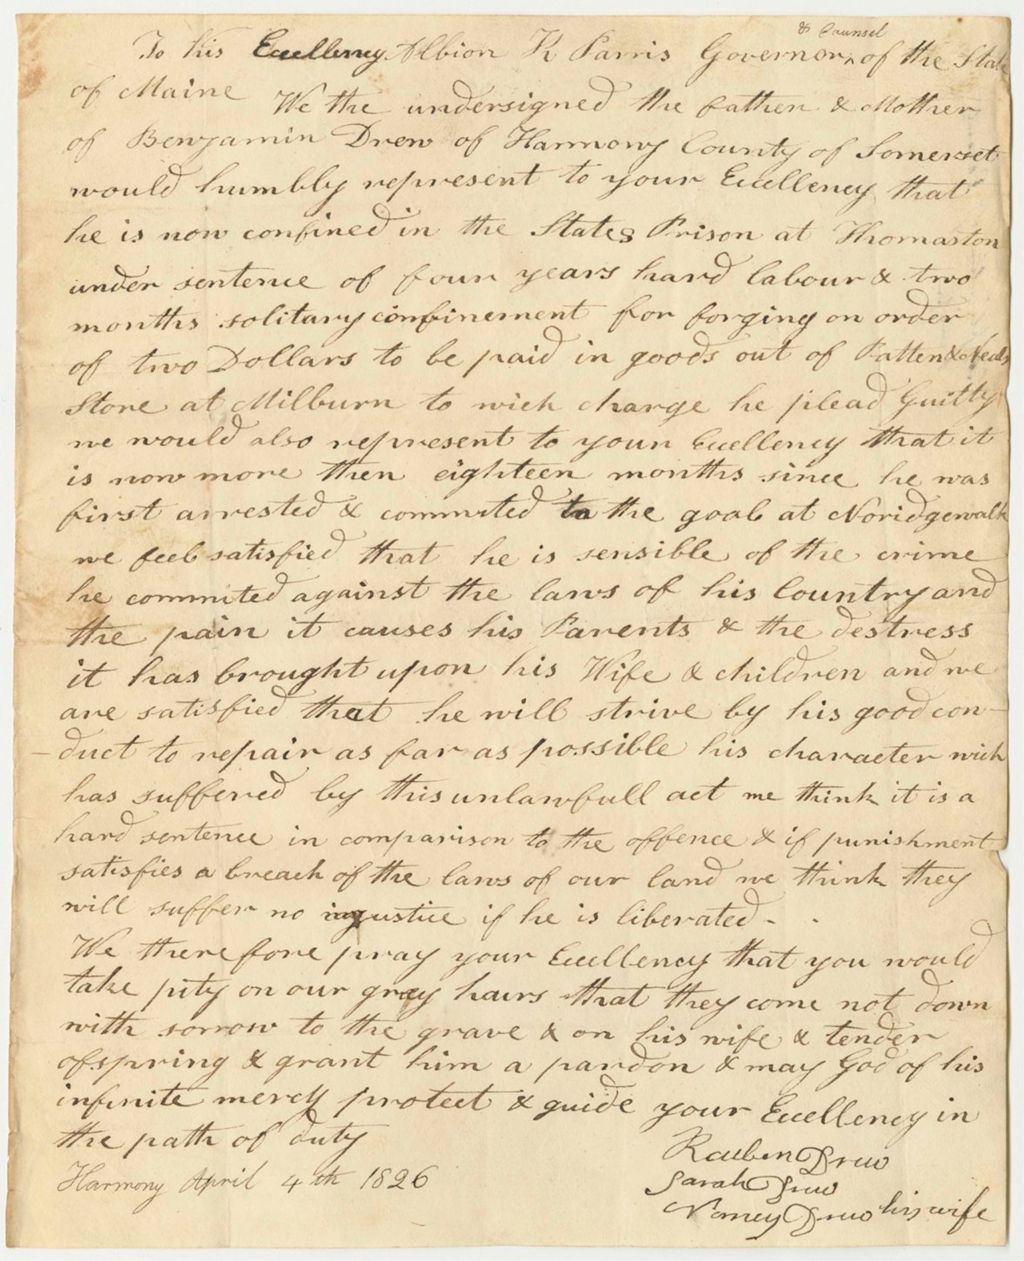 To his Excellency Albion K Parris Governor & Counsel of the State
of Maine We the undersigned the father & Mother
of Benjamin Drew of Harmony County of Somerset
would humbly represent to your Excellency that
he is now confined in the States Prison at Thomaston
under sentence of four years hard labour & two
months solitary confinement for forging on order
of two Dollars to be paid in goods out of Patten & Neals
Store at Milburn to wich charge he plead Guilty
we would also represent to your Excellency that it
is now more then eighteen months since he was
first arrested & commited to the goal at Noridgewalk
we feel satisfied that he is sensible of the crime
he commited against the laws of his Country and
the pain it causes his Parents & the destress
it has brought upon his Wife & children and we
are satisfied that he will strive by his good con-
duct to repair as far as possible his character wich
has suffered by this unlawfull act we think it is a
hard sentence in comparison to the offence & if punishment
satisfies a breach of the laws of our land we think they
will suffer no injustice if he is liberated - -
We therefore pray your Excellency that you would
take pity on our gray hairs that they come not down
with sorrow to the grave & on his wife & tender
ofspring & grant him a pardon & may God of his
infinite mercy protect & guide your Excellency in
the path of duty
Harmony April 4th 1826
Reuben Drew
Sarah Drew
Nancy Drew his wife